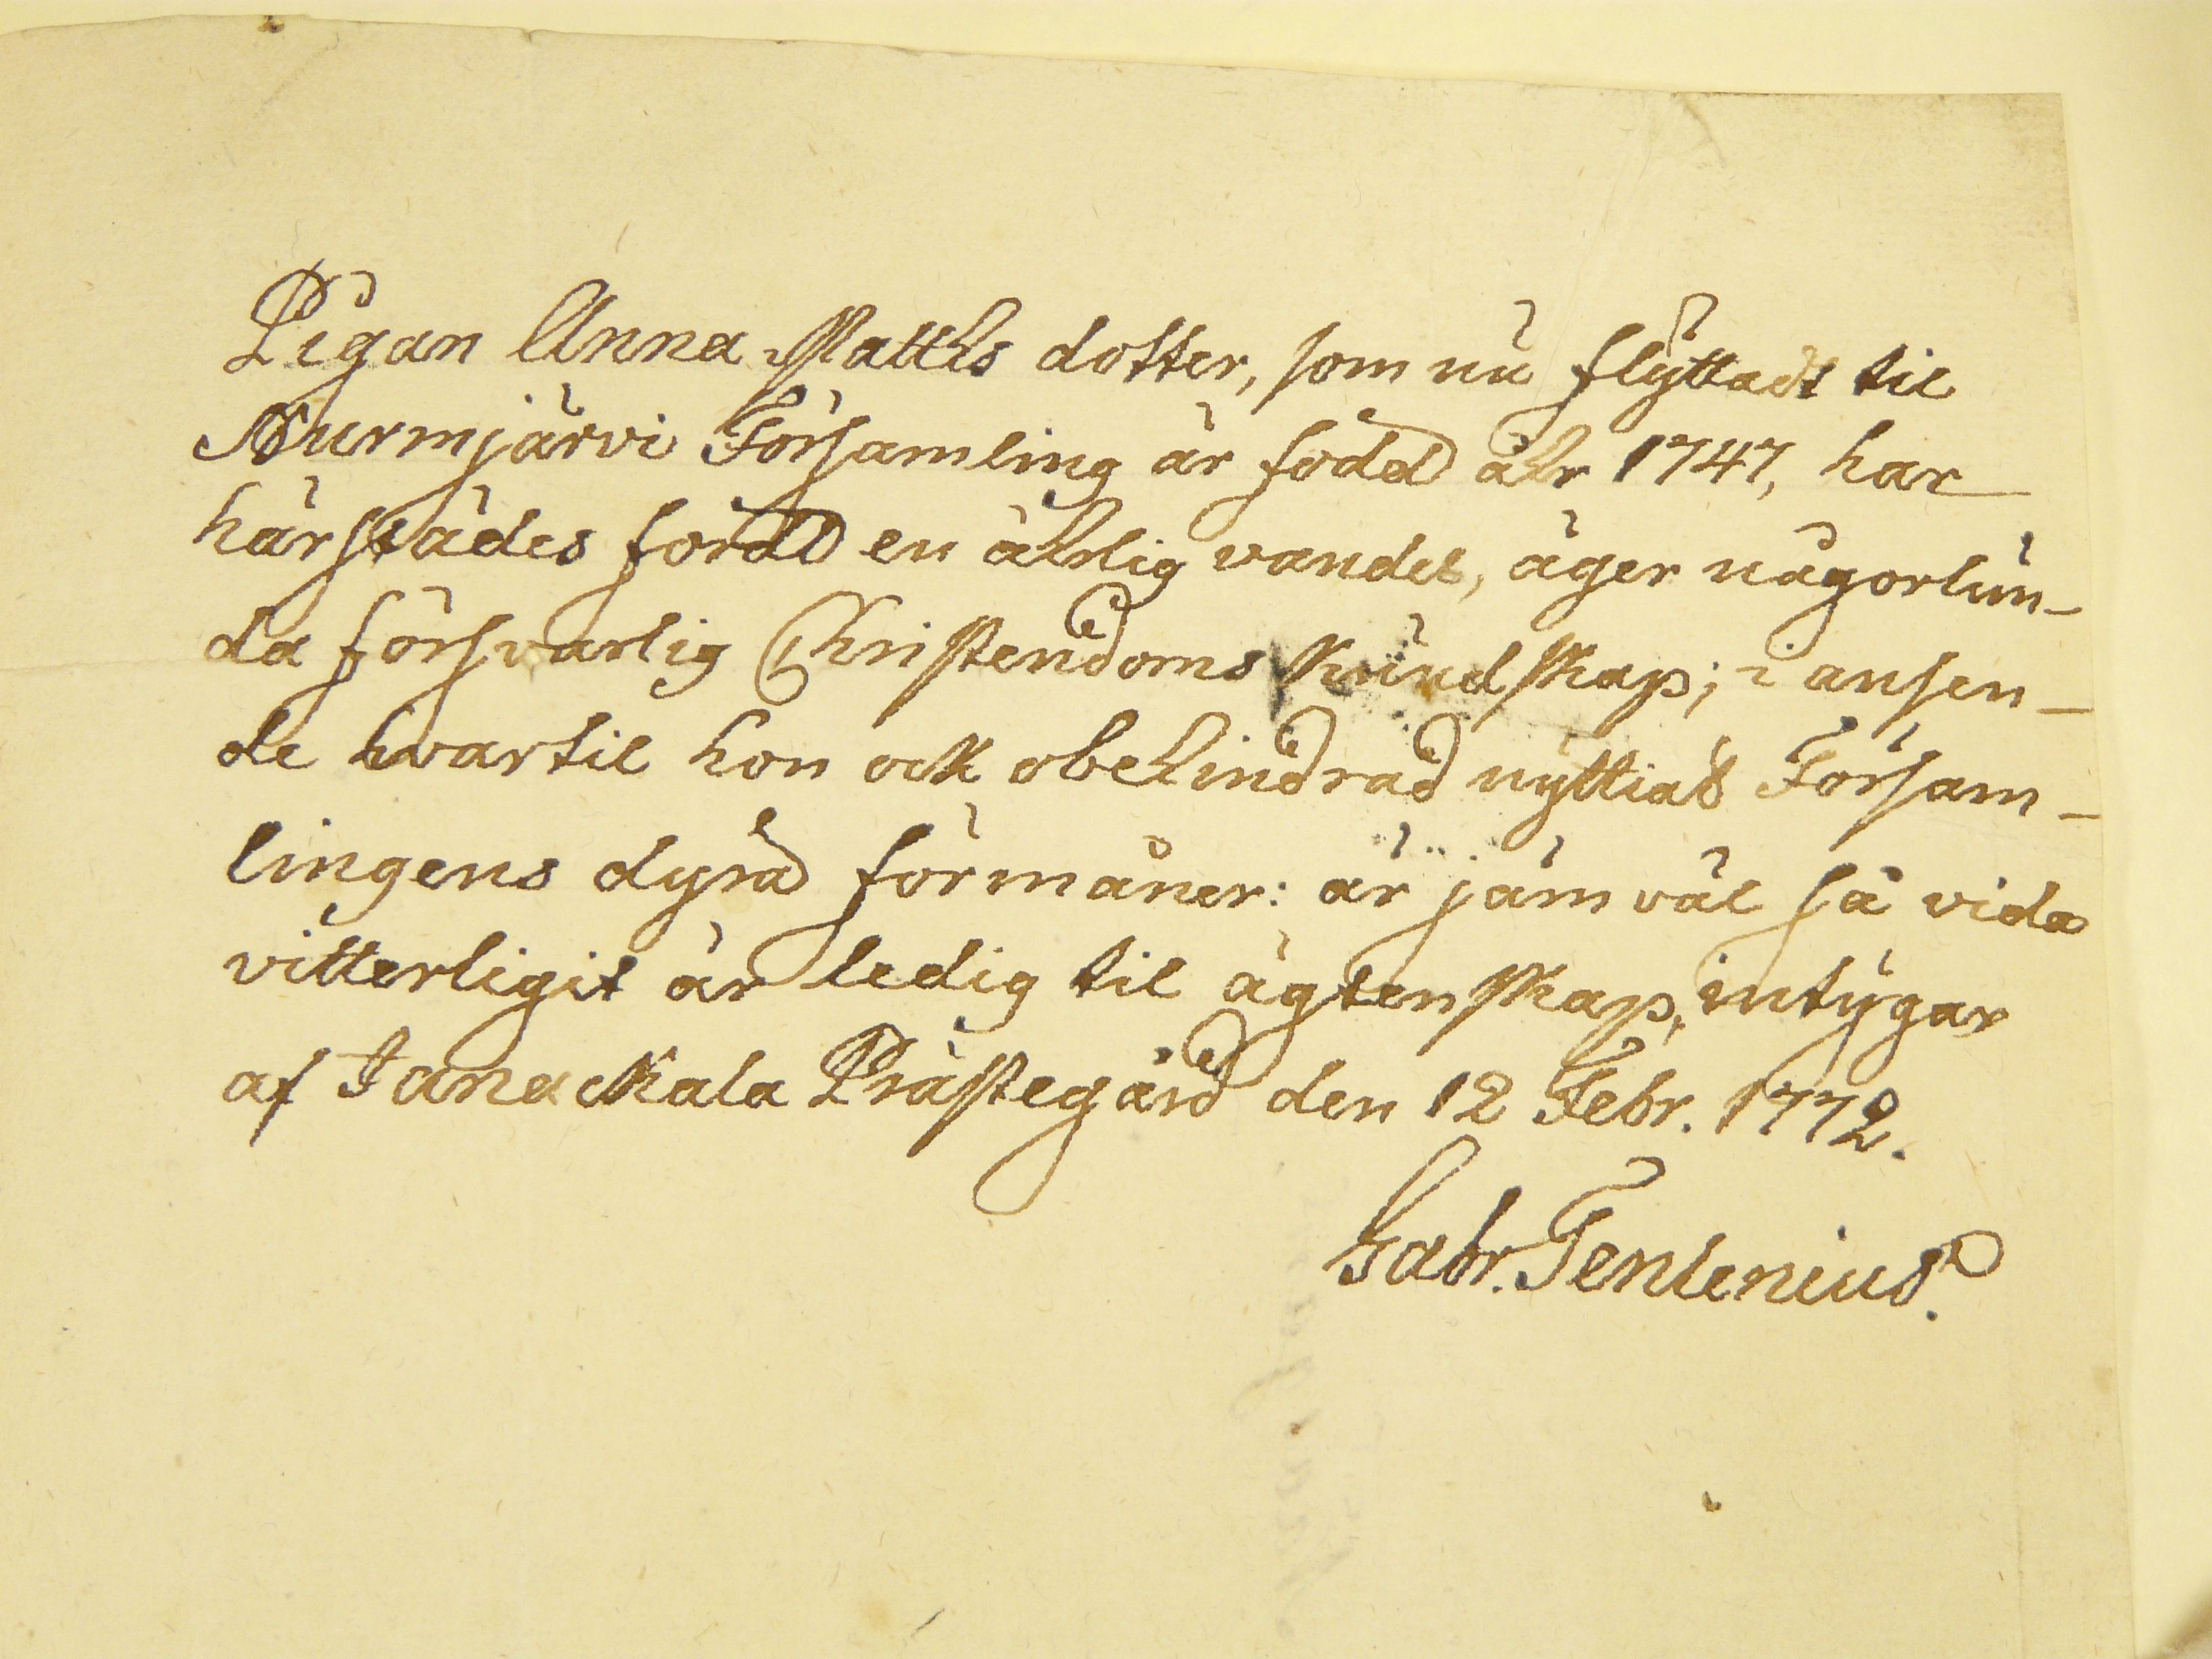 Pigan Anna Matths dotter, som nu flyttadt til
Nurmjärvi Församling är född åhr 1747, har
härstädes fördt en ährlig vandel, äger någorlun-
da försvarlig Christendoms kundskap; i ansen-
de hvartil hon ock obehindrad nyttiat Församl-
lingens dyra förmåner: är jämväl så vida
vitterligit är ledig til ägtenskap, intygar
af Janackala Prästegård den 12 Febr. 1772.
Gabr. Tenlenius.